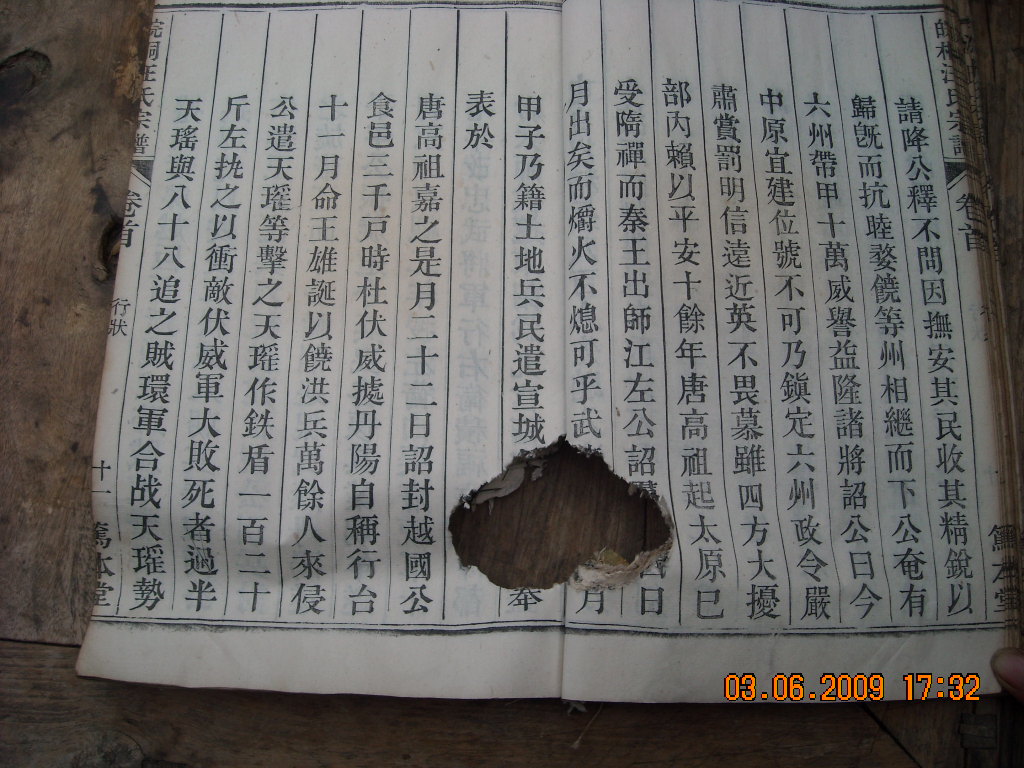 請降公釋不問因撫安其民收其精銳以
歸旣而抗睦婺饒等州相繼而下公奄有
六州帶甲十萬威譽益隆諸將詔公曰今
中原宜建位號不可乃鎭定六州政令嚴
肅賞罰明信遠近英不畏慕雖四方大擾
部內賴以平安十餘年唐高祖起太原已
受隋禪而秦王出師江左公詔 曰
月出矣而爝火不熄可乎武 月
甲子乃籍土地兵民遣宣城 奉
表於
唐高祖嘉之是月二十二日詔封越國公
食邑三千戶時杜伏威摅丹陽自稱行台
十一月命王雄誕以饒洪兵萬餘人來侵
公遣天瑤等擊之天瑤作鉄盾一百二十
斤左抰之以衝敵伏威軍大敗死者過半
天瑤與八十八追之賊環軍合战天瑤勢
皖桐汪氏宗譜
卷首
行狀
十一
篤本堂
卷首
篤本堂
03.06.2009 17:32